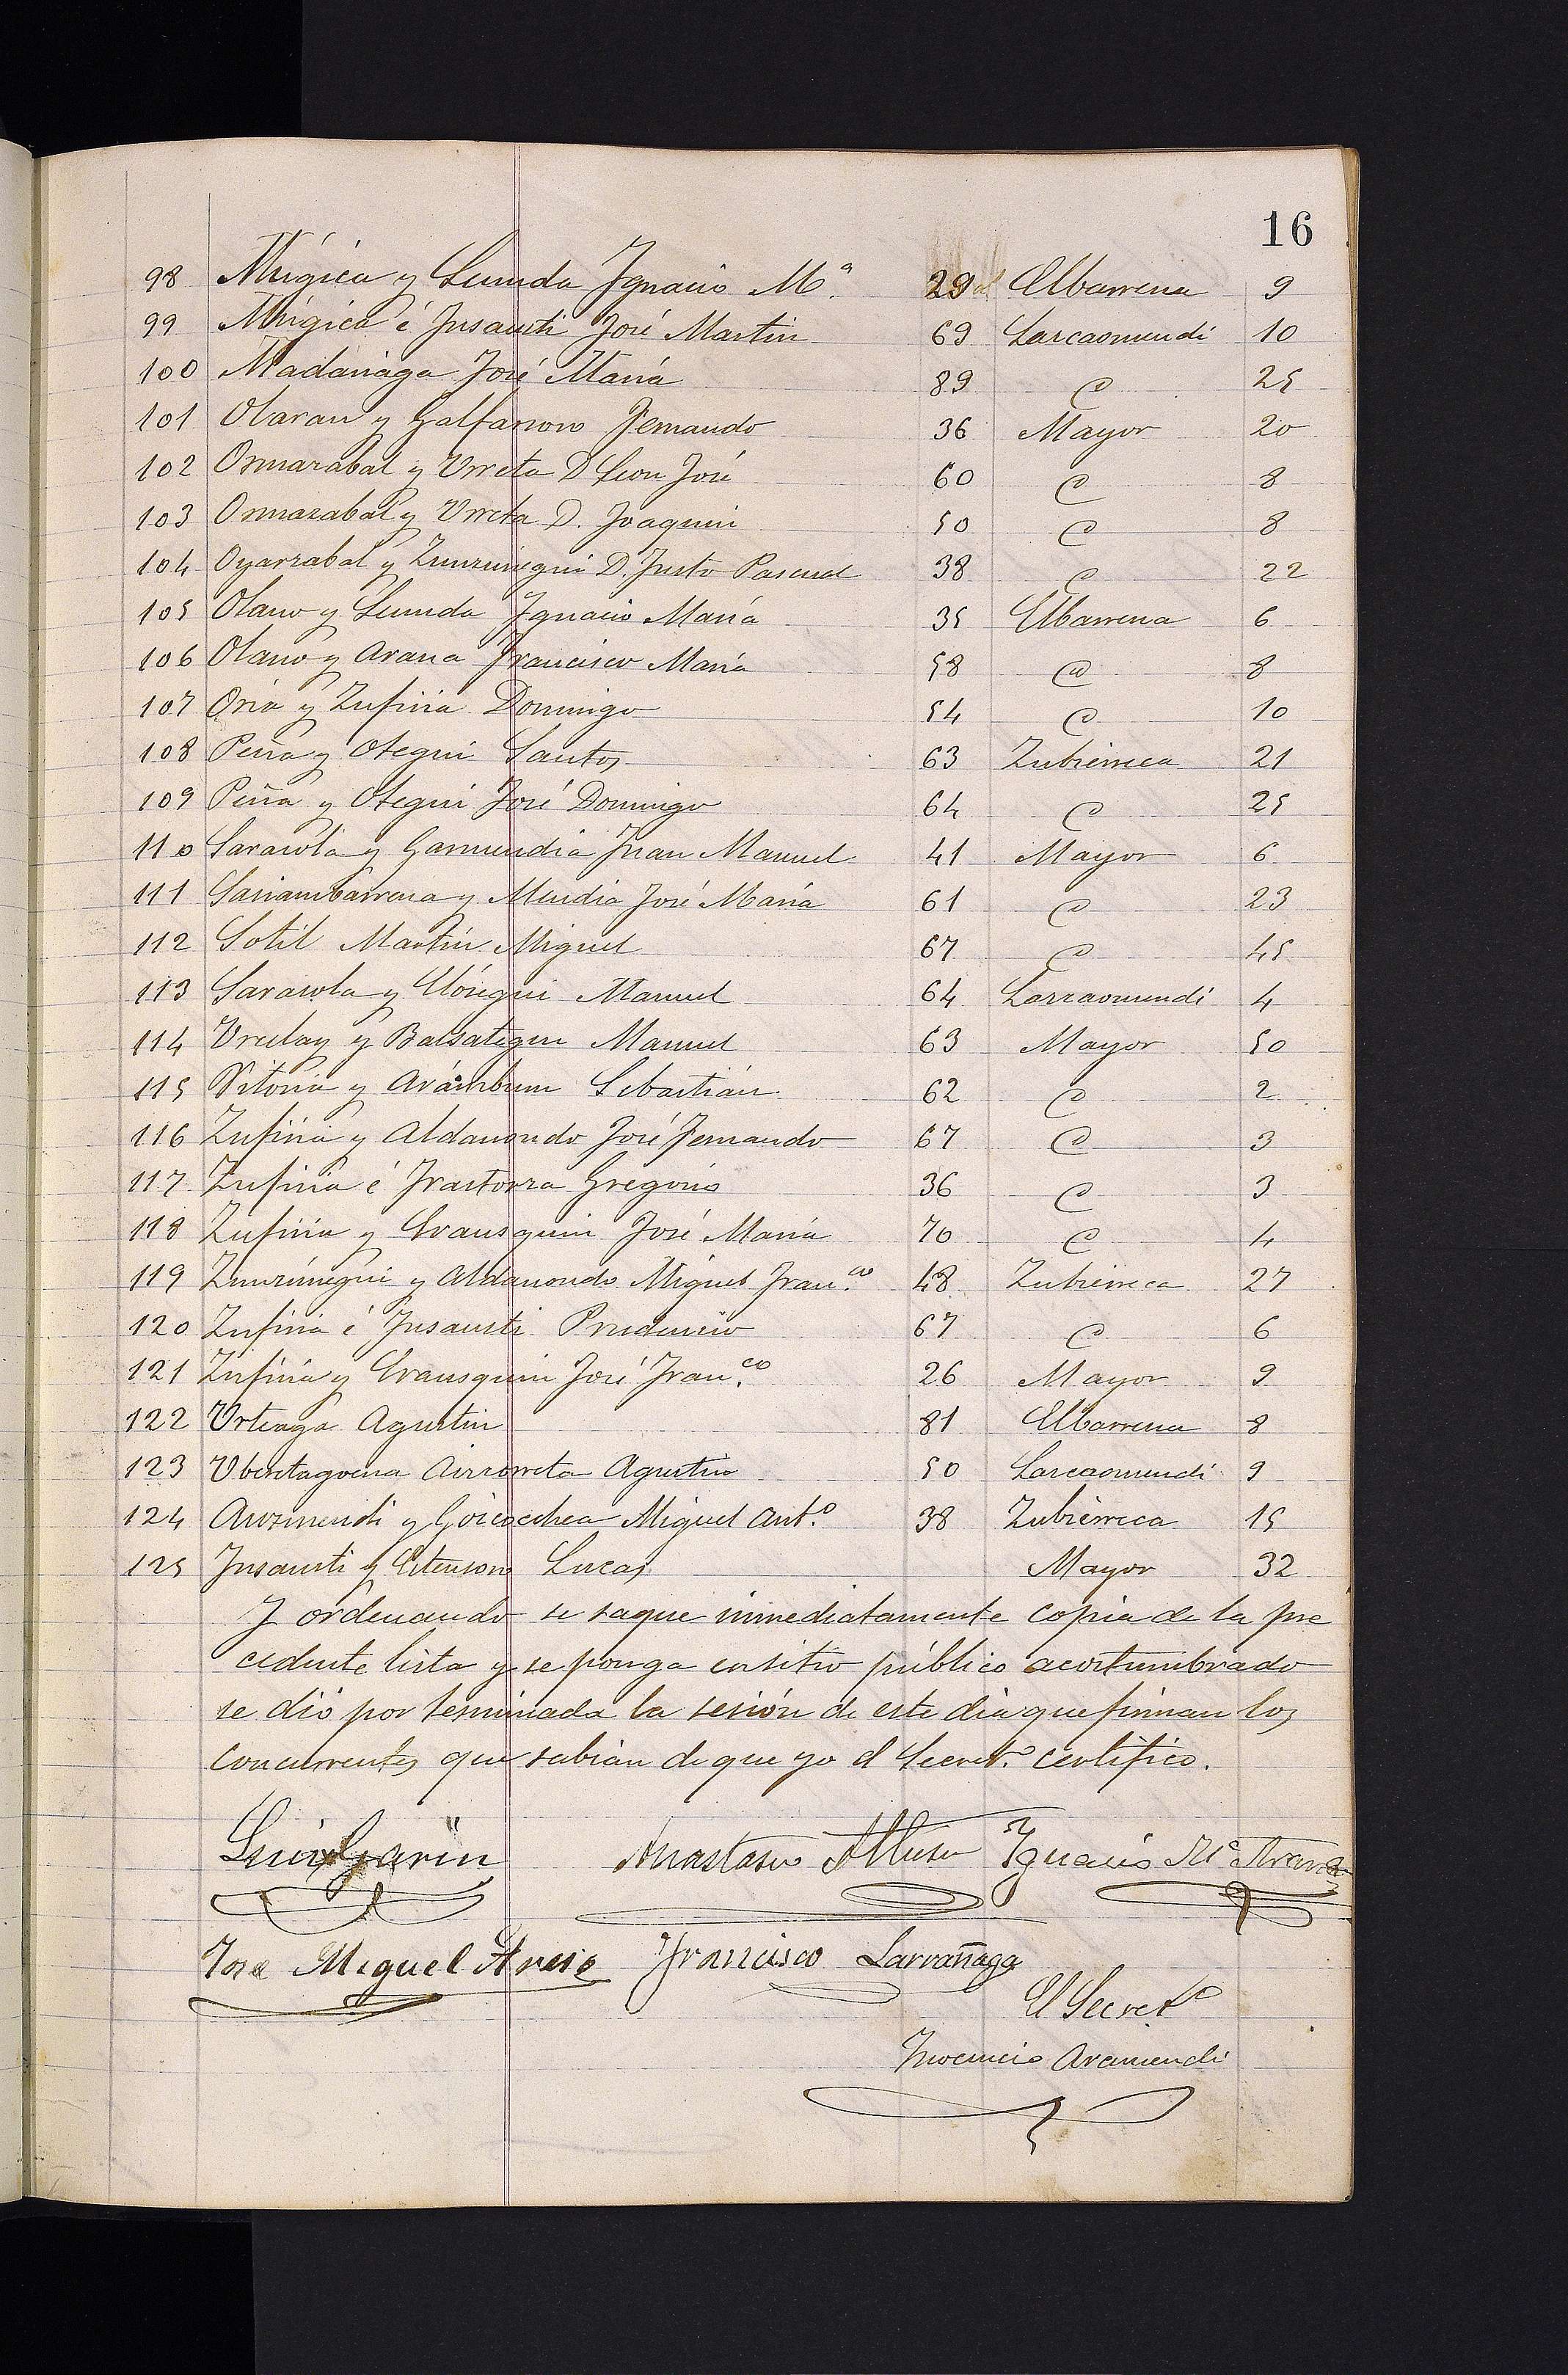 16
98 Múgica y Lunida Ignacio Mª 29 Elbarrena 9
99 Múgica é Insausti José Martin 69 Larcaomendi 10
100 Madariaga José María 89 @ 25
101 Olaran y Galfarsoro Fernando 36 Mayor 20
102 Ormazabal y Urreta D Leon José 60 @ 8
103 Ormazabal y Urreta D. Joaquin 50 @ 8
104 Oyarzabal y Zunzunegui D. Justo Pascual 38 @ 22
105 Olano y Lunida Ignacio María 35 Elbarrena 6
106 Olano y Arana Francisco María 58 @ 8
107 Oria y Zufiria Domingo 54 @ 10
108 Peña y Otegui Santos 63 Zubierreca 21
109 Peña y Otegui José Domingo 64 @ 25
110 Sarasola y Garmendia Juan Manuel 41 Mayor 6
111 Sariambarrena y Mendia José María 61 @ 23
112 Sotil Martin Miguel 67 @ 45
113 Sarasola y Elósegui Manuel 64 Larcaomendi 4
114 Urcelay y Balsategui Manuel 63 Mayor 50
115 Vitoria y Arámburu Sebastián 62 @ 2
116 Zufiria y Aldanondo José Fernando 67 @ 3
117 Zufiria é Irastorza Gregorio 36 @ 3
118 Zufiria y Erausquin José María 70 @ 4
119 Zunzunegui y Aldanondo Miguel Fran.co 48 Zubierreca 27
120 Zufiria é Insausti Prudencio 67 @ 6
121 Zufiria y Erausquin José Fran.co 26 Mayor 9
122 Urteaga Agustin 81 Elbarrena 8
123 Uberetagoena Airzorreta Agustin 50 Larcaomendi 9
124 Auzmendi y Goicoechea Miguel Ant.o 38 Zubierreca 15
125 Insausti y Estensoro Lucas Mayor 32
Y ordenando se saque inmediatamente copia de la pre
cedente lista y se ponga en sitio público acostumbrado
se dió por terminada la sesión de este dia que firman los
concurrentes que sabian de que yo el Secret.o certifico.
Luis Garin Anastasio Altuna Ignacio Mª Arana
Jose Miguel Arese Francisco Larrañaga
El Secret.o
Inocencio Aramendi